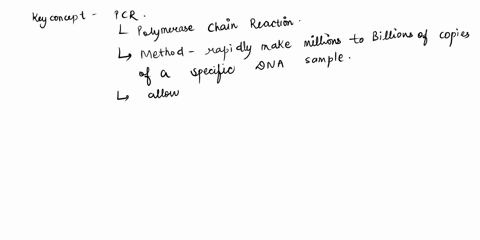 Key concept - PCR.
↳ Polymerase Chain Reaction.
↳ Method - rapidly make millions to Billions of copies
of a specific DNA sample.
↳ allow